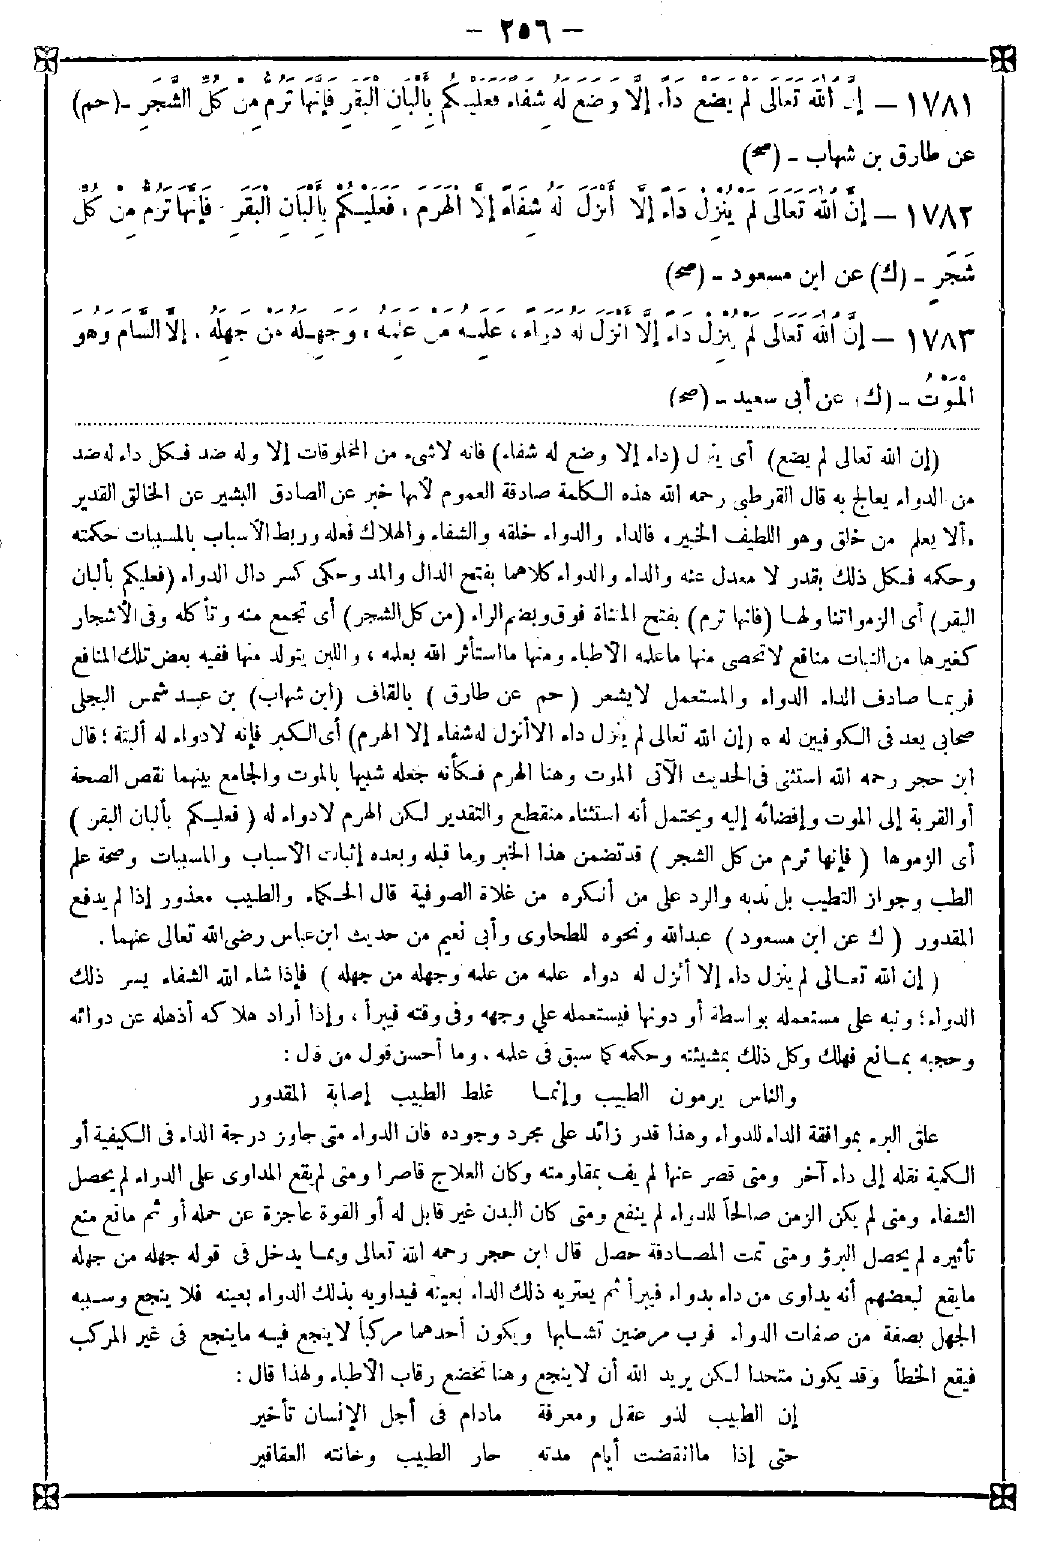 - ٢٥٦ -
١٧٨١ - إِنَّ اللّٰهَ تَعَالَى لَمْ يَضَعْ دَاءً إِلَّا وَضَعَ لَهُ شِفَاءً فَعَلَيْكُمْ بِأَلْبَانِ الْبَقَرِ فَإِنَّهَا تَرُمُّ مِنْ كُلِّ الشَّجَرِ - (حم)
عن طارق بن شهاب - (صح)
١٧٨٢ - إِنَّ اللّٰهَ تَعَالَى لَمْ يُنْزِلْ دَاءً إِلَّا أَنْزَلَ لَهُ شِفَاءً إِلَّا الْهَرَمَ، فَعَلَيْكُمْ بِأَلْبَانِ الْبَقَرِ فَإِنَّهَا تَرُمُّ مِنْ كُلِّ
شَجَرٍ - (ك) عن ابن مسعود - (صح)
١٧٨٣ - إِنَّ اللّٰهَ تَعَالَى لَمْ يُنْزِلْ دَاءً إِلَّا أَنْزَلَ لَهُ دَوَاءً، عَلِمَهُ مَنْ عَلِمَهُ، وَجَهِلَهُ مَنْ جَهِلَهُ، إِلَّا السَّامَ وَهُوَ
الْمَوْتُ - (ك) عن أبى سعيد - (صح)
(إن الله تعالى لم يضع) أى ينزل (داء إلا وضع له شفاء) فانه لاشىء من المخلوقات إلا وله ضد فكل داء له ضد
من الدواء يعالج به قال القرطبى رحمه الله هذه الكلمة صادقة العموم لأنها خبر عن الصادق البشير عن الخالق القدير
«ألا يعلم من خلق وهو اللطيف الخبير» فالداء والدواء خلقه والشفاء والهلاك فعله وربط الأسباب بالمسببات حكمته
وحكمه فكل ذلك بقدر لا معدل عنه والداء والدواء كلاهما بفتح الدال والمد وحكى كسر دال الدواء (فعليكم بألبان
البقر) أى الزموا تناولها (فانها ترم) بفتح المثناة فوق وبضم الراء (من كل الشجر) أى تجمع منه وتأكله وفى الأشجار
كغيرها من النبات منافع لاتحصى منها ماعلمه الأطباء ومنها مااستأثر الله بعلمه، واللبن يتولد منها ففيه بعض تلك المنافع
فربما صادف الداء الدواء والمستعمل لايشعر (حم عن طارق) بالقاف (ابن شهاب) بن عبد شمس البجلى
صحابى يعد فى الكوفيين له * (إن الله تعالى لم ينزل داء الا أنزل له شفاء إلا الهرم) أى الكبر فإنه لادواء له ألبتة؛ قال
ابن حجر رحمه الله استثنى فى الحديث الآتى الموت وهنا الهرم فكأنه جعله شبيها بالموت والجامع بينهما نقص الصحة
أو القربة إلى الموت وإفضائه إليه ويحتمل أنه استثناء منقطع والتقدير لكن الهرم لادواء له (فعليكم بألبان البقر)
أى الزموها (فإنها ترم من كل الشجر) قد تضمن هذا الخبر وما قبله وبعده إثبات الأسباب والمسببات وصحة علم
الطب وجواز التطبب بل ندبه والرد على من أنكره من غلاة الصوفية قال الحكماء والطبيب معذور إذا لم يدفع
المقدور (ك عن ابن مسعود) عبدالله ونحوه للطحاوى وأبى نعيم من حديث ابن عباس رضى الله تعالى عنهما.
(إن الله تعالى لم ينزل داء إلا أنزل له دواء علمه من علمه وجهله من جهله) فإذا شاء الله الشفاء يسر ذلك
الدواء؛ ونبه على مستعمله بواسطة أو دونها فيستعمله على وجهه وفى وقته فيبرأ، وإذا أراد هلاكه أذهله عن دوائه
وحجبه بمانع فهلك وكل ذلك بمشيئته وحكمه كما سبق فى علمه، وما أحسن قول من قال:
والناس يرمون الطبيب وإنما غلط الطبيب إصابة المقدور
علق البرء بموافقة الداء للدواء وهذا قدر زائد على مجرد وجوده فان الدواء متى جاوز درجة الداء فى الكيفية أو
الكمية نقله إلى داء آخر ومتى قصر عنها لم يف بمقاومته وكان العلاج قاصرا ومتى لم يقع المداوى على الدواء لم يحصل
الشفاء ومتى لم يكن الزمن صالحاً للدواء لم ينفع ومتى كان البدن غير قابل له أو القوة عاجزة عن حمله أو ثم مانع منع
تأثيره لم يحصل البرؤ ومتى تمت المصادفة حصل قال ابن حجر رحمه الله تعالى ومما يدخل فى قوله جهله من جهله
مايقع لبعضهم أنه يداوى من داء بدواء فيبرأ ثم يعتريه ذلك الداء بعينه فيداويه بذلك الدواء بعينه فلا ينجع وسببه
الجهل بصفة من صفات الدواء فرب مرضين تشابها ويكون أحدهما مركباً لاينجع فيه ماينجع فى غير المركب
فيقع الخطأ وقد يكون متحدا لكن يريد الله أن لاينجع وهنا تخضع رقاب الأطباء ولهذا قال:
إن الطبيب لذو عقل ومعرفة مادام فى أجل الإنسان تأخير
حتى إذا ماانقضت أيام مدته حار الطبيب وخانته العقاقير